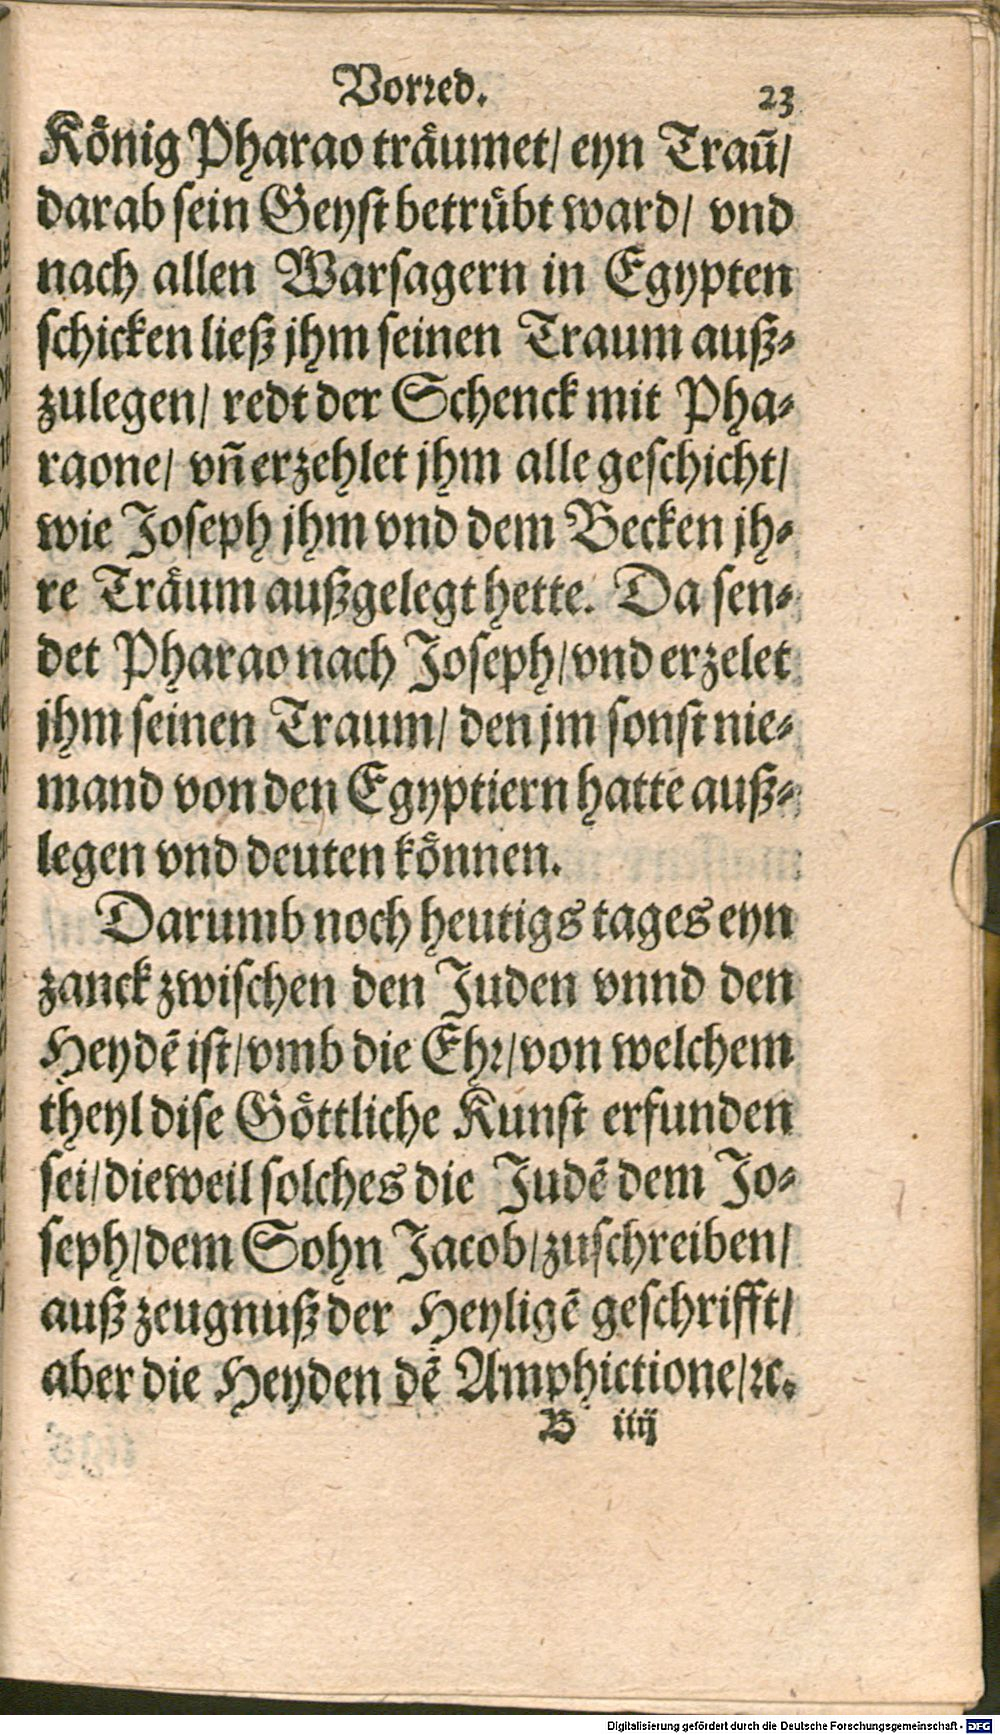 Vorred.
23
König Pharao träumet/ eyn Traū/
darab sein Geyst betrübt ward/ vnd
nach allen Warsagern in Egypten
schicken ließ jhm seinen Traum auß-
zulegen/ redt der Schenck mit Pha-
raone/ vn̄ erzehlet jhm alle geschicht/
wie Joseph jhm vnd dem Becken jh-
re Träum außgelegt hette. Da sen-
det Pharao nach Joseph/ vnd erzelet
jhm seinen Traum/ den jm sonst nie-
mand von den Egyptiern hatte auß-
legen vnd deuten können.
Darumb noch heutigs tages eyn
zanck zwischen den Juden vnnd den
Heydē ist/ vmb die Ehr/ von welchem
theyl dise Göttliche Kunst erfunden
sei/ dieweil solches die Judē dem Jo-
seph/ dem Sohn Jacob/ zuschreiben/
auß zeugnuß der Heyligē geschrifft/
aber die Heyden dē Amphictione/ ꝛc.
B iiij
Digitalisierung gefördert durch die Deutsche Forschungsgemeinschaft - DFG